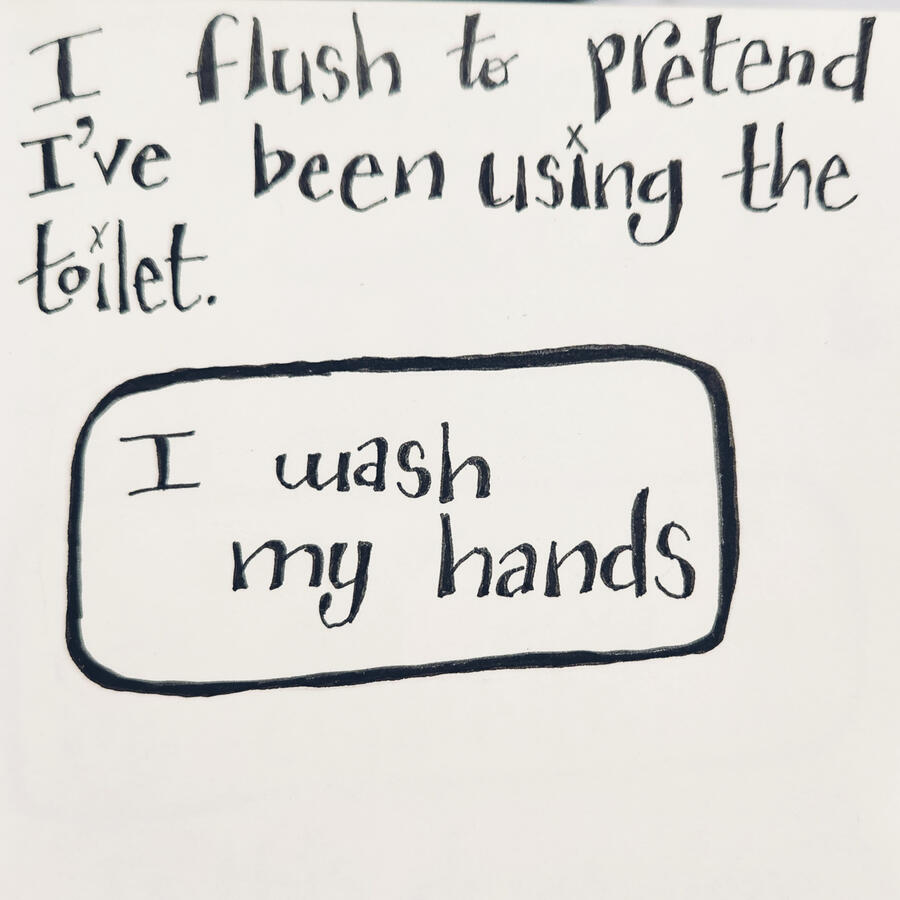 I flush to pretend
I've been using the
toilet.
I wash
my hands